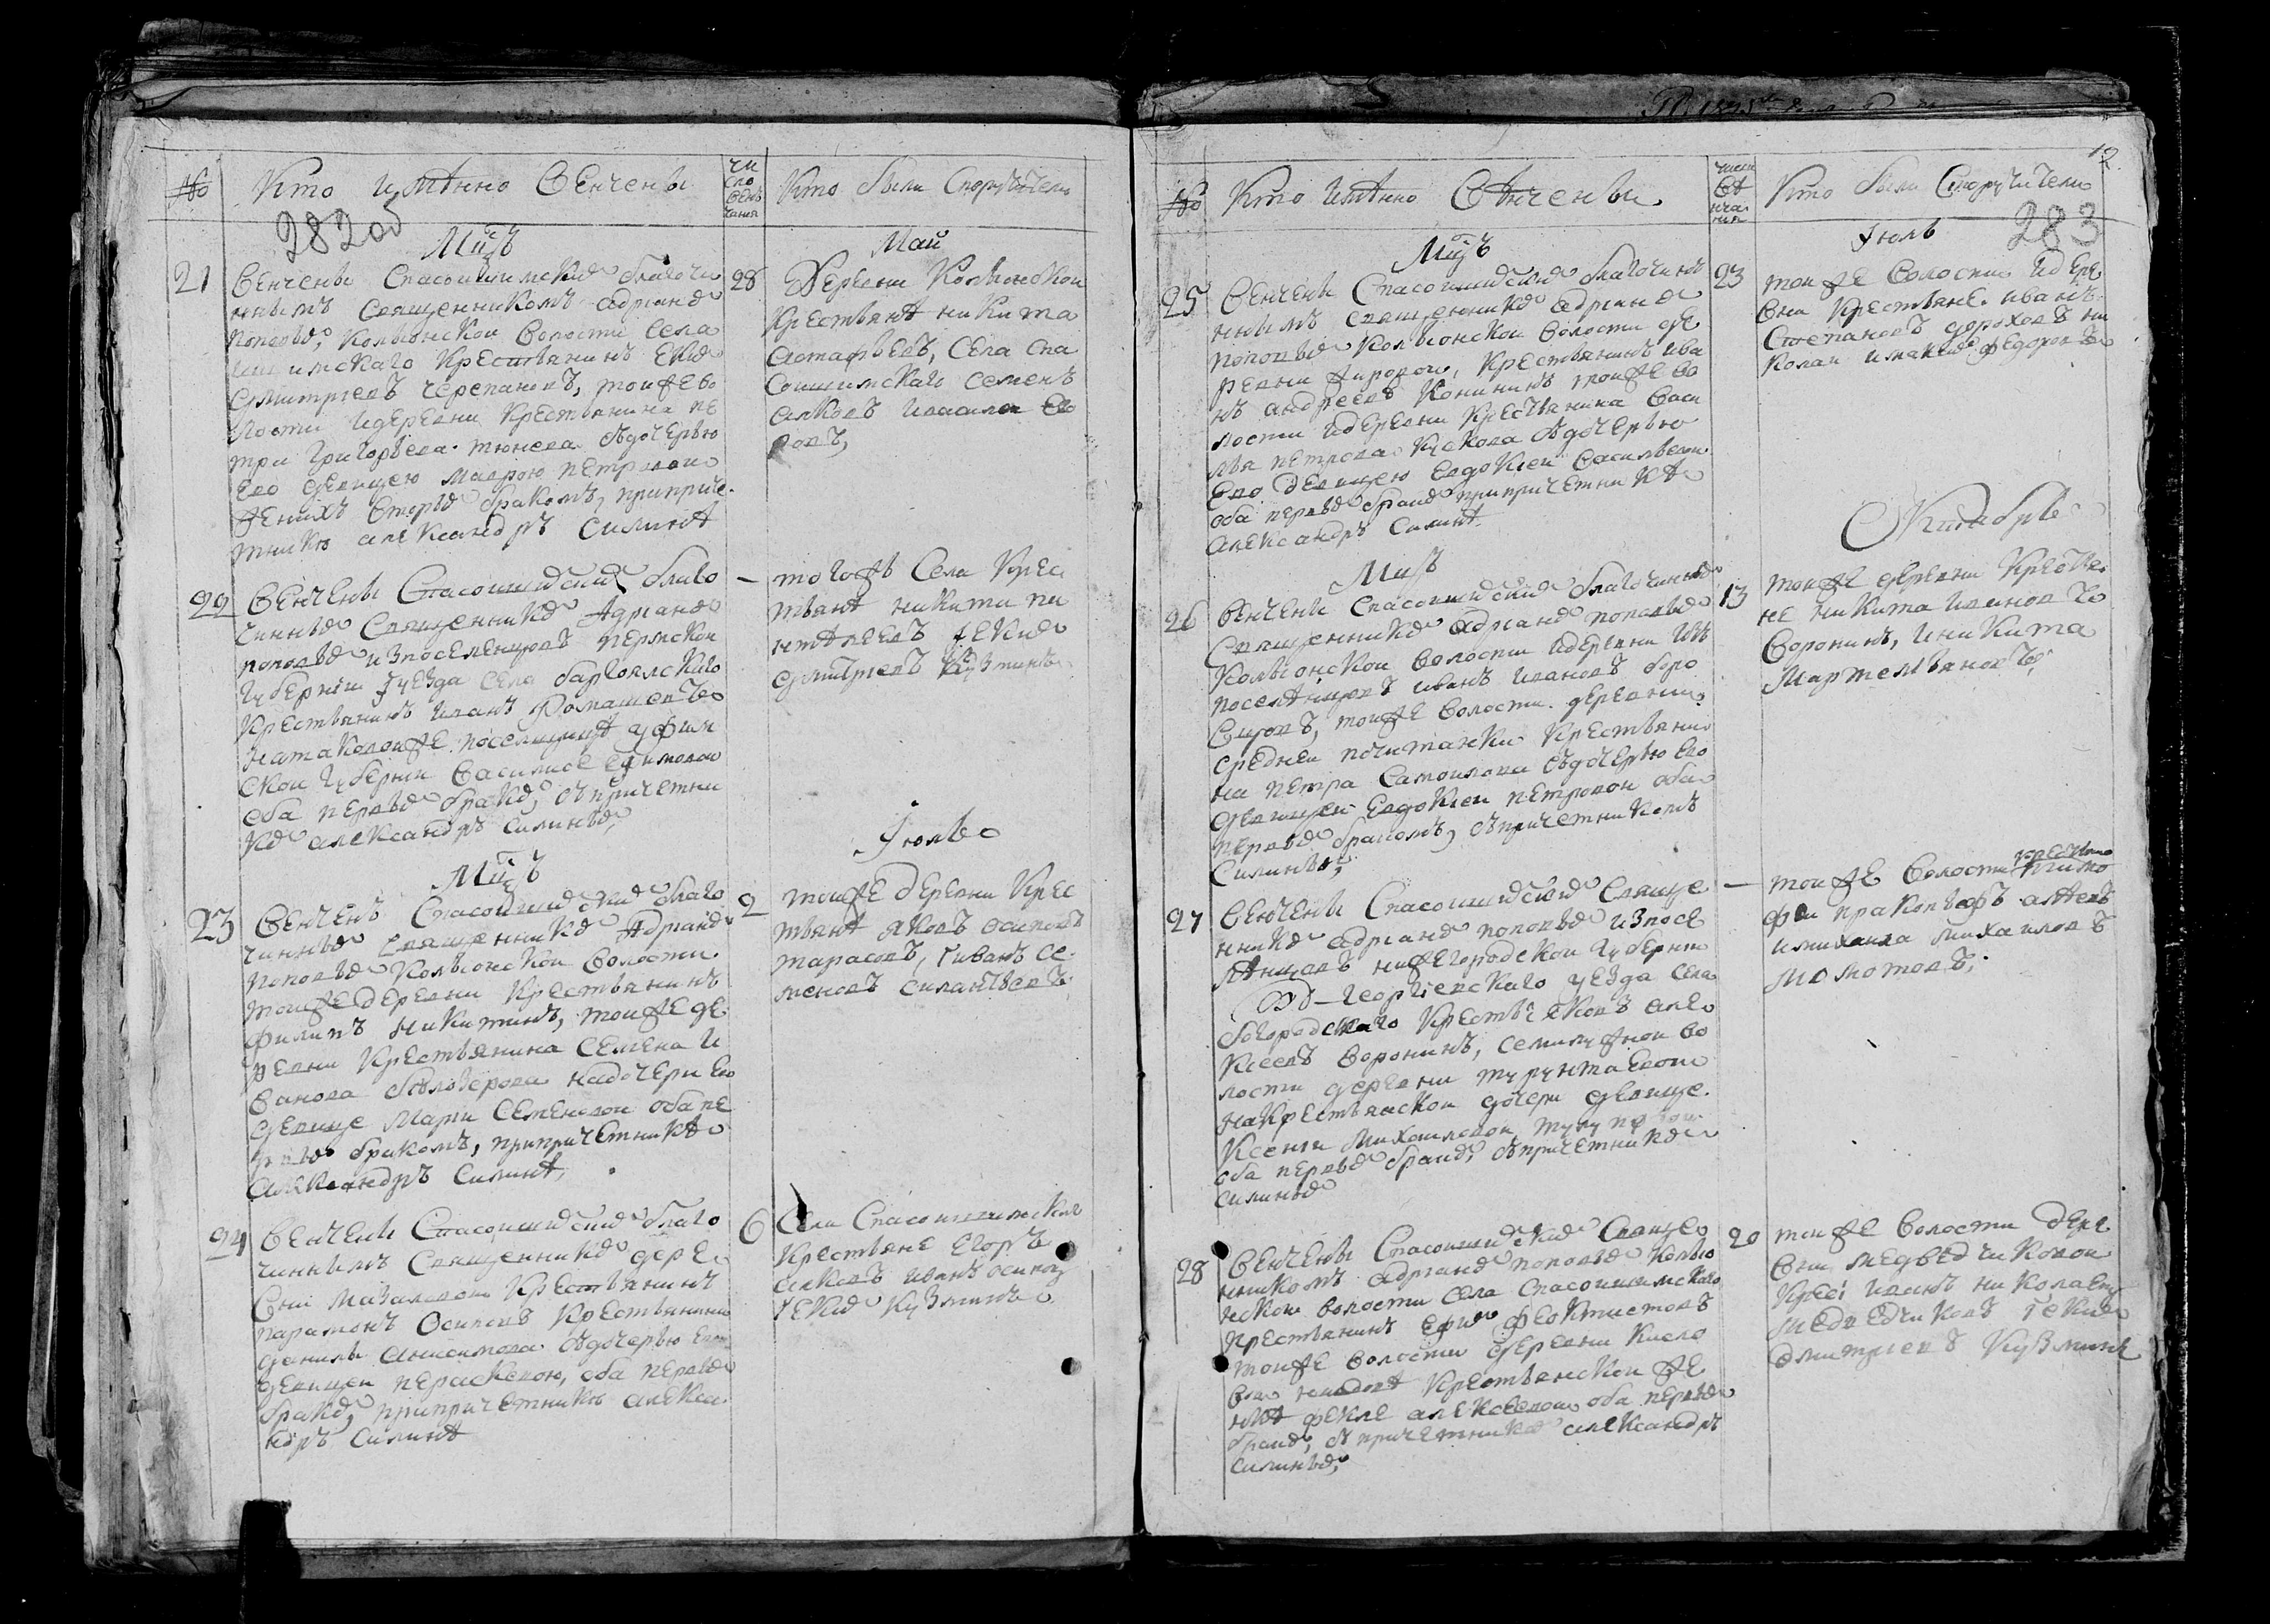 №
Кто имянно венчены
чи
сло
вен
чания
Кто были споручители
282 об
Мцъ
Май
21
Венчены Спасоишимским благочи
ннымъ священникомъ Адриано
Поповы, Колыонской волости села
ишимскаго крестьянинъ Еким
Дмитриевъ Черепановъ, тойже во
лости и деревни крестьянина пе
тра Григорьева Тюнева здочерью
его девицею Маврою Петровой
жених вторы бракомъ, при приче
тнике александръ Силине
28
Деревни Колыонской
крестьяне никита
Астафьевъ, села Спа
соишимскаго Семенъ
22
Венчены Спасоишимским благо
чинны священнико Адриано
поповы из поселенцовъ пермской
губернии уезда села
крестьянинъ иванъ Ромашевъ
на таковойже поселщице уфим
ской губернии Василисе Ефимовой
оба первы браком, съ причетни
ком александръ Силины
—
тогожъ села крес
тьяне никита па
нтелеевъ и еким
Дмитриевъ Кузминъ
Июль
Мцъ
23
Венченъ Спасоишимским благо
чинны священнико Адриано
Поповы Колыонской волости
тойже деревни крестьянинъ
филипъ Никитинъ, тойже де
ревни крестьянина Семена и
ванова Белозерова на дочери его
девице Марии Семеновой оба пе
рвы бракомъ, при причетнике
александръ Силине,
2
тойже деревни крес
тьяне яковъ осиповъ
тарасовъ, иванъ се
меновъ Силантьевъ
24
Венчены Спасоишимским благо
чиннымъ священнико дере
вни Мазаловой крестьянинъ
парамонъ Осиповъ крестьянина
данилы анисимова здочерью его
девицей пераскевою, оба первы
браком, при причетнике алекса
ндръ Силине
6
Села Спасоишимскаго
крестьяне Егоръ
иванъ осипов
и Еким Кузминъ
12
№
Кто имянно венчены
число
ве
нча
ния
Кто были споручители
283
Мцъ
Июль
25
Венчены Спасоишимским благочин
нымъ священнико Адриано
поповы Колыонской волости де
ревни жировой, крестьянинъ ива
нъ андреевъ Конининъ тойже во
лости и деревни крестьянина Васи
лья петрова Кускова здочерью
его девицею Евдокией Васильевой
оба первы браком при причетнике
александръ Силине
23
тойже волости и дере
вни крестьяне иванъ
Степановъ дороховъ ни
колай и максим Федоровъ
Октябрь
Мцъ
26
Венчены Спасоишимским благочинны
священнико Адриано поповы
Колыонской волости и деревни изъ
поселенцовъ иванъ ивановъ
тойже волости деревни
средней почитанки крестьяни
на петра Самойлова здочерью его
девицей Евдокией петровой оба
первы бракомъ, съ причетникомъ
Силины,
13
тойже деревни крестья
не никита ивановъ
Воронинъ, и никита
Мартемьяновъ,
27
Венчены Спасоишимским священ
нико Адриано поповы из посе
ленцовъ нижегородской губернии
георгиевскаго уезда села
богородскаго яковъ але
ксеевъ Воронинъ, семилужной во
лости деревни турунтаевой
на крестьянской дочери девице
Ксении Михайловой
оба первы браком, съ причетником
силины
—
тойже волости крестьяне тимо
фей пракопьефъ
и михаила михаиловъ
28
Венчены Спасоишимским священ
никомъ Адриано поповы Колыо
нской волости села Спасоишимскаго
крестьянинъ Ефим феоктистовъ
тойже волости деревни кисло
вой на вдове крестьянской же
не фекле алексеевой оба первы
браком, съ причетником александръ
силины,
20
тойже волости дере
вни медведчиковой
крес: иванъ николаевъ
медведчиковъ и еким
Дмитриевъ Кузминъ